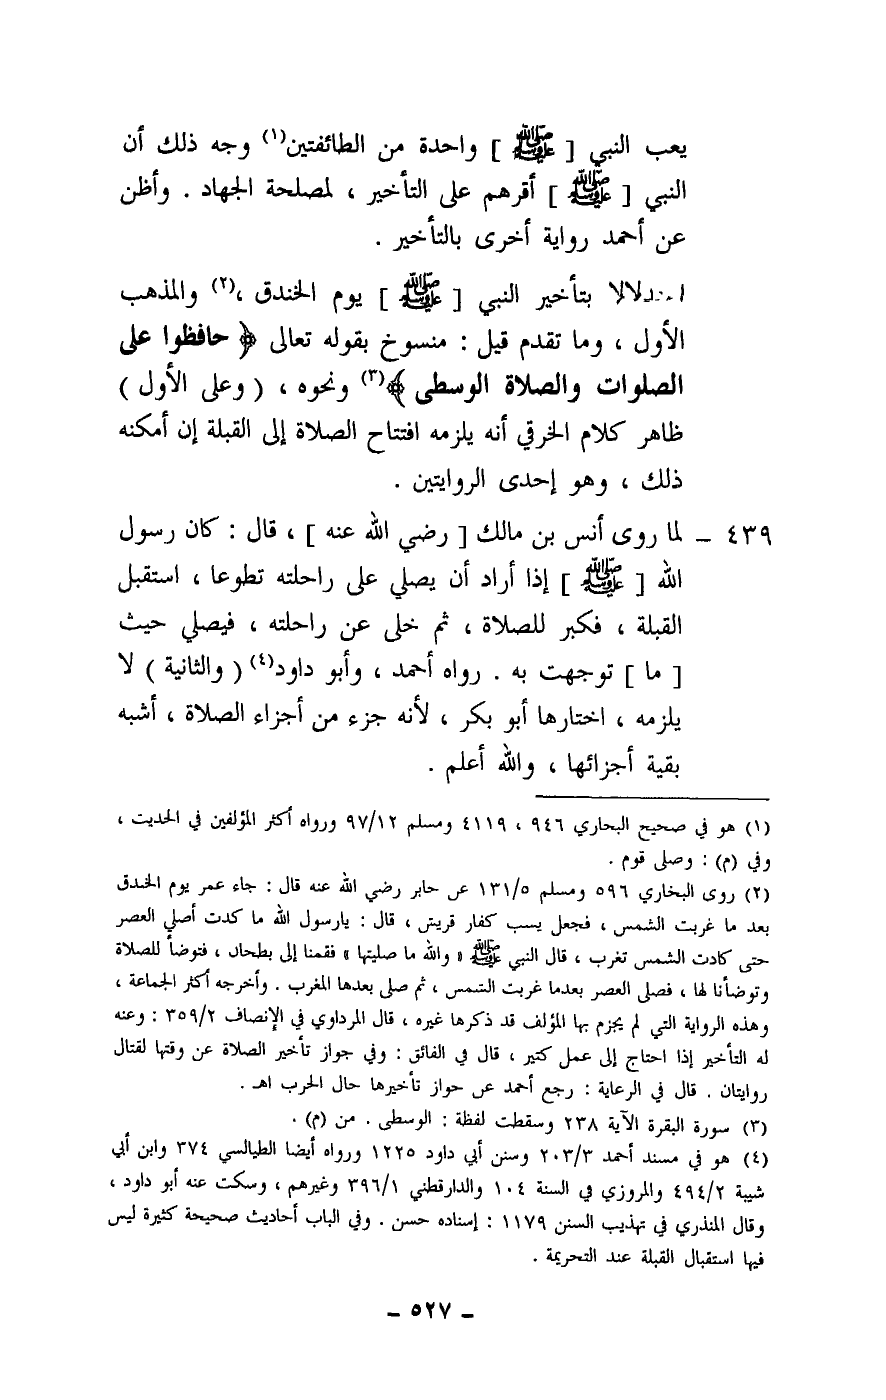 يعب النبي [ ﷺ ] واحدة من الطائفتين(١) وجه ذلك أن
النبي [ ﷺ ] أقرهم على التأخير ، لمصلحة الجهاد . وأظن
عن أحمد رواية أخرى بالتأخير .
استدلالا بتأخير النبي [ ﷺ ] يوم الخندق ،(٢) والمذهب
الأول ، وما تقدم قيل : منسوخ بقوله تعالى ﴿ حافظوا على
الصلوات والصلاة الوسطى ﴾(٣) ونحوه ، ( وعلى الأول )
ظاهر كلام الخرقي أنه يلزمه افتتاح الصلاة إلى القبلة إن أمكنه
ذلك ، وهو إحدى الروايتين .
٤٣٩ – لما روى أنس بن مالك [ رضي الله عنه ] ، قال : كان رسول
الله [ ﷺ ] إذا أراد أن يصلي على راحلته تطوعا ، استقبل
القبلة ، فكبر للصلاة ، ثم خلى عن راحلته ، فيصلي حيث
[ ما ] توجهت به . رواه أحمد ، وأبو داود(٤) ( والثانية ) لا
يلزمه ، اختارها أبو بكر ، لأنه جزء من أجزاء الصلاة ، أشبه
بقية أجزائها ، والله أعلم .
(١) هو في صحيح البخاري ٩٤٦ ، ٤١١٩ ومسلم ٩٧/١٢ ورواه أكثر المؤلفين في الحديث ،
وفي (م) : وصلى قوم .
(٢) روى البخاري ٥٩٦ ومسلم ١٣١/٥ عن جابر رضي الله عنه قال : جاء عمر يوم الخندق
بعد ما غربت الشمس ، فجعل يسب كفار قريش ، قال : يارسول الله ما كدت أصلي العصر
حتى كادت الشمس تغرب ، قال النبي ﷺ « والله ما صليتها » فقمنا إلى بطحان ، فتوضأ للصلاة
وتوضأنا لها ، فصلى العصر بعدما غربت الشمس ، ثم صلى بعدها المغرب . وأخرجه أكثر الجماعة ،
وهذه الرواية التي لم يجزم بها المؤلف قد ذكرها غيره ، قال المرداوي في الإنصاف ٣٥٩/٢ : وعنه
له التأخير إذا احتاج إلى عمل كثير ، قال في الفائق : وفي جواز تأخير الصلاة عن وقتها لقتال
روايتان . قال في الرعاية : رجع أحمد عن جواز تأخيرها حال الحرب اهـ .
(٣) سورة البقرة الآية ٢٣٨ وسقطت لفظة : الوسطى . من (م) .
(٤) هو في مسند أحمد ٢٠٣/٣ وسنن أبي داود ١٢٢٥ ورواه أيضا الطيالسي ٣٧٤ وابن أبي
شيبة ٤٩٤/٢ والمروزي في السنة ١٠٤ والدارقطني ٣٩٦/١ وغيرهم ، وسكت عنه أبو داود ،
وقال المنذري في تهذيب السنن ١١٧٩ : إسناده حسن . وفي الباب أحاديث صحيحة كثيرة ليس
فيها استقبال القبلة عند التحريمة .
– ٥٢٧ –